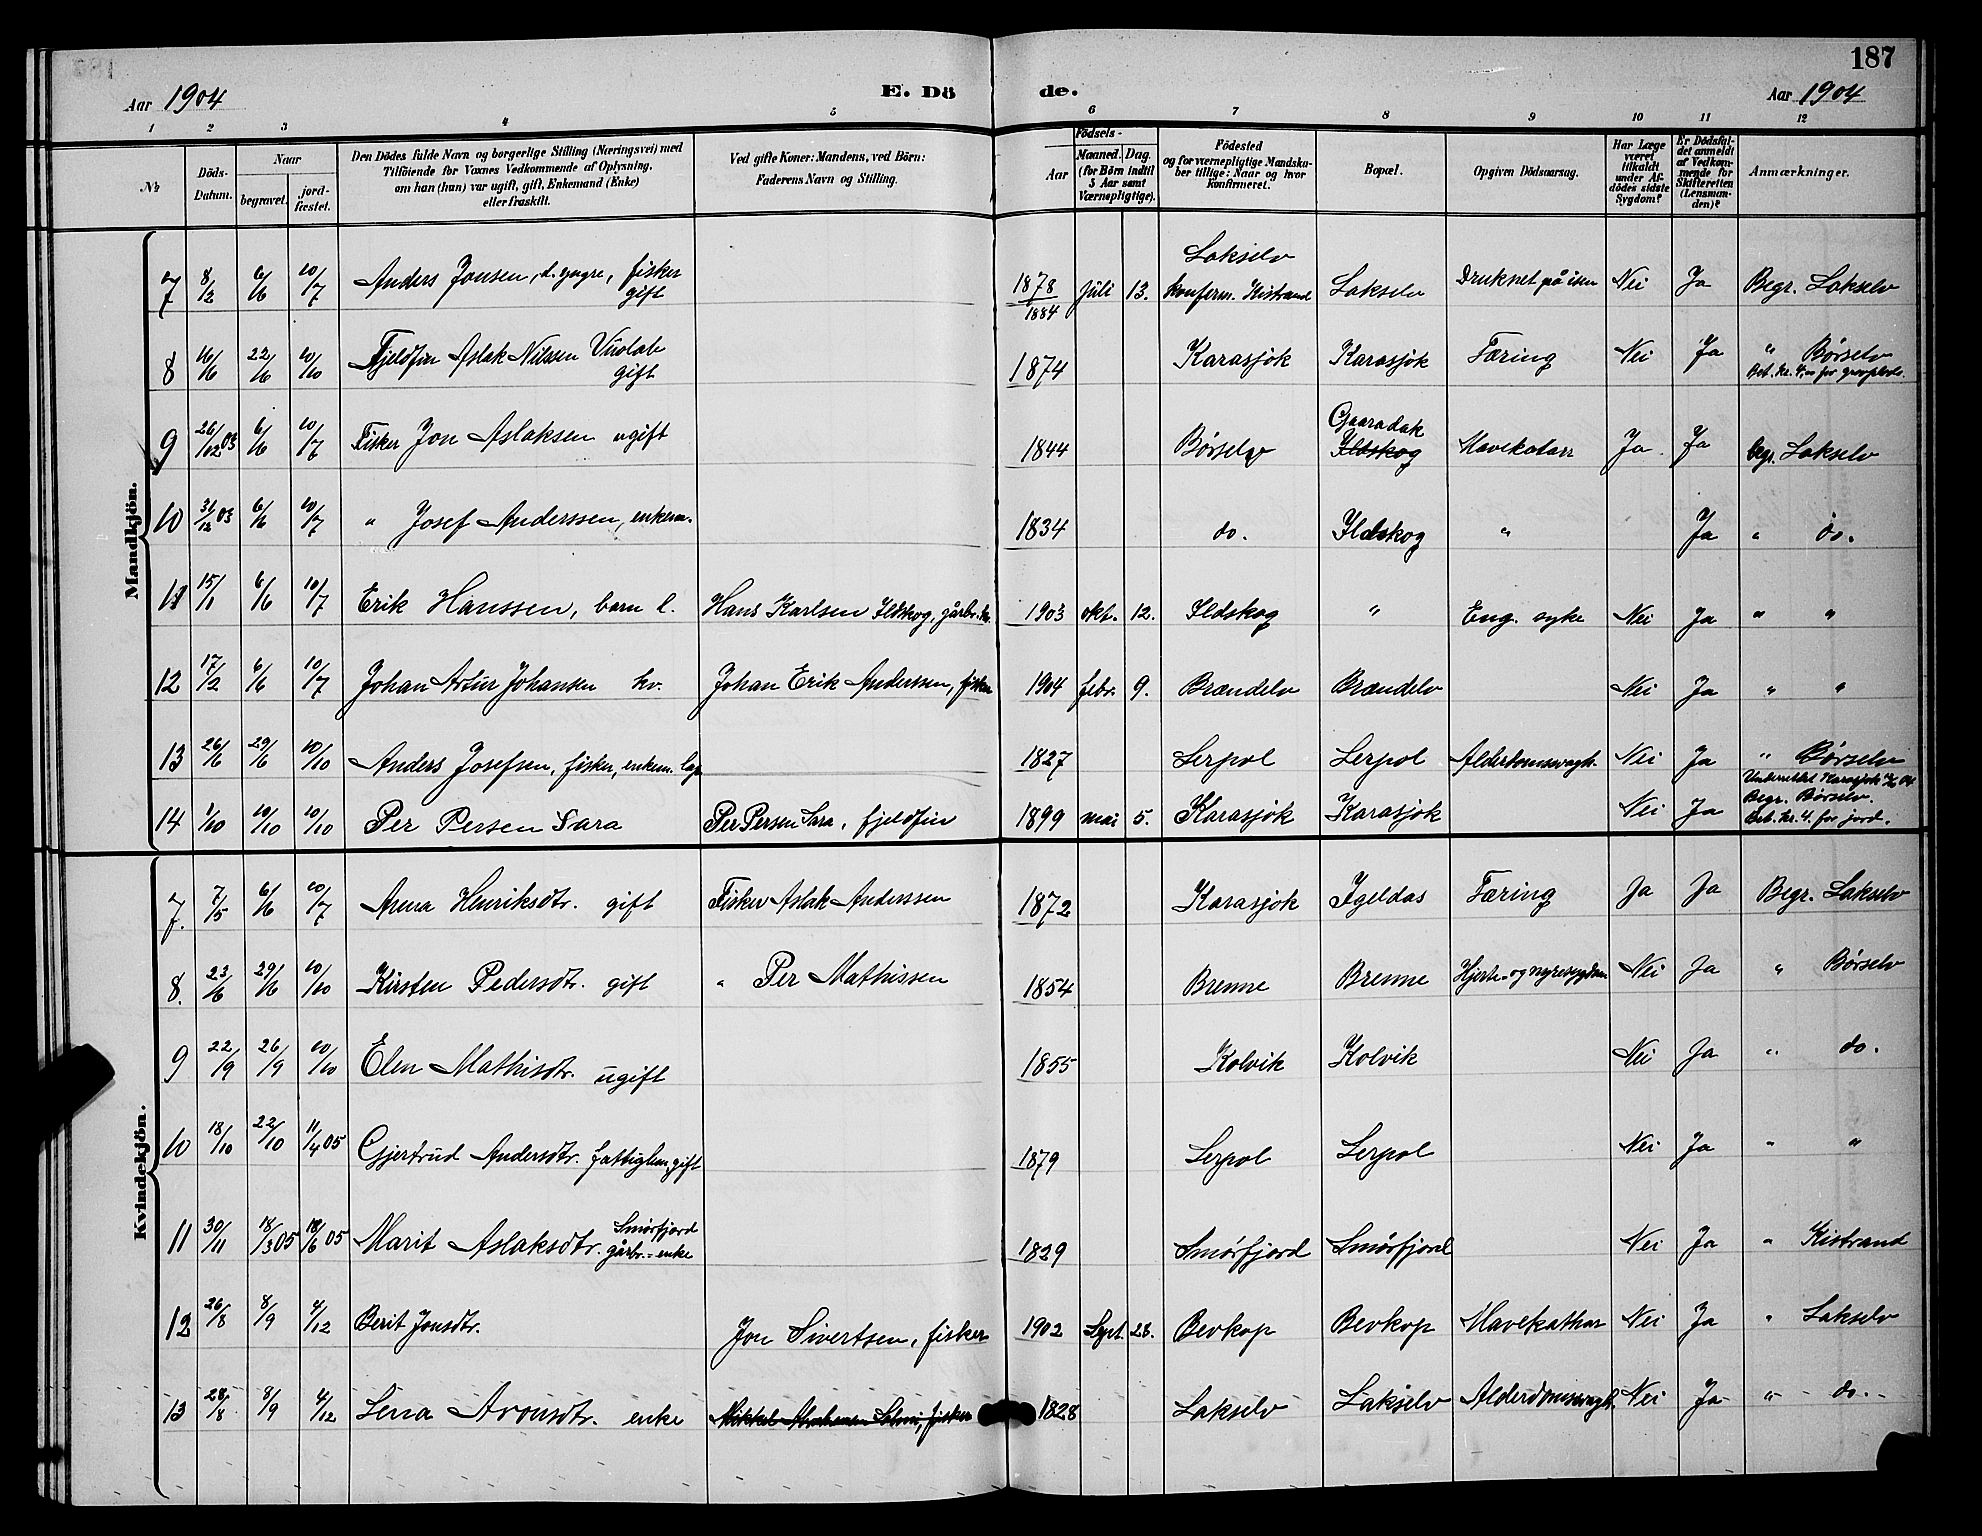 187
Aar 1904
E. Dö
de.
Aar 1904
1 2 3 4 5 6 7 8 9 10 11 12
№
Döds-Datum.
Naar
begravet.
jord-fæstet.
Den Dödes fulde Navn og borgerlige Stilling (Næringsvei) med
Tilföiende for Voxnes Vedkommende af Oplysning,
om han (hun) var ugift, gift, Enkemand (Enke)
eller fraskilt.
Ved gifte Koner: Mandens, ved Börn:
Faderens Navn og Stilling.
Födsels-
Aar
Maaned. Dag.
(for Börn indtil
5 Aar samt
Værnepligtige).
Födested
og for værnepligtige Mandsku-
ber tillige: Naar og hvor
konfirmeret.
Bopæl.
Opgiven Dödsaarsag.
Har Læge
været
tilkaldt
under Af-
dödes sidste
Sygdom?
Er Dödsfal-
det anmeldt
af Vedkom-
mende for
Skifteretten
(Lensman-
den)?
Anmærkninger.
Mandkjön.
7 8/2 6/6 10/7 Anders Jonsen, d. yngre, fisker gift 1878 juli 13. Lakselv konferm. Kistrand 1884 Lakselv Druknet på isen Nei Ja Begr. Lakselv
8 16/6 22/6 10/10 Fjeldfin Aslak Nilssen Vuolab gift 1874 Karasjok Karasjok Tæring Nei Ja " Børselv
Bet. kr. 4,00 for gravplads.
9 26/12 03 6/6 10/7 Fisker Jon Aslaksen ugift 1844 Børselv Gaaradak Ildskog Mavekatarr Ja. Ja begr. Lakselv
10 31/12 03 6/6 10/7 " Josef Anderssen, enkem. 1834 do. Ildskog " Ja " do.
11 15/1 6/6 10/7 Erik Hanssen, barn l. Hans Karlsen Ildskog, gårbr. 1903 okt. 12. Ildskog " Eng. syke Nei Ja " "
12 17/2 6/6 10/7 Johan Artur Johansen hv. Johan Erik Anderssen, fisker 1904 febr. 9. Brændelv Brændelv Nei Ja " "
13 26/6 29/6 10/10 Anders Josefsen, fisker, enkem. lap 1827 Lerpol Lerpol Alderdomssvagh. Nei Ja " Børselv
14 1/10 10/10 10/10 Per Persen Sara Per Persen Sara, fjeldfin 1899 mai 5. Karasjok Karasjok Nei Ja Underrettet Karasjok
Begr. Børselv.
Bet. kr. 4. for jord.
Kvindekjön.
7. 7/5 6/6 10/7 Anna Henriksdtr. gift Fisker Aslak Anderssen 1872 Karasjok Igeldas Tæring Ja Ja Begr. Lakselv
8. 23/6 29/6 10/10 Kirsten Pedersdtr. gift " Per Mathissen 1854 Brenne Brenne Hjerte- og nyresygdom Nei Ja " Børselv
9 22/9 26/9 10/10 Elen Mathisdtr. ugift 1855 Kolvik Kolvik Nei Ja " do.
10 18/10 22/10 11/4 05 Gjertrud Andersdtr. fattiglem, gift 1879 Lerpol Lerpol Nei Ja " "
11 30/11 18/3 05 18/6 05 Marit Aslaksdtr. Smørfjord gårbr.-enke 1829 Smørfjord Smørfjord Nei Ja " Kistrand
12 26/8 8/9 4/12 Berit Jonsdtr. Jon Sivertsen, fisker 1902 Sept. 28. Bevkop Bevkop Mavekathar Nei Ja " Lakselv
13 28/8 8/9 4/12 Lena Aronsdtr. enke Mikkel fisker 1828 Lakselv Lakselv Alderdomssvagh. Nei Ja " do.